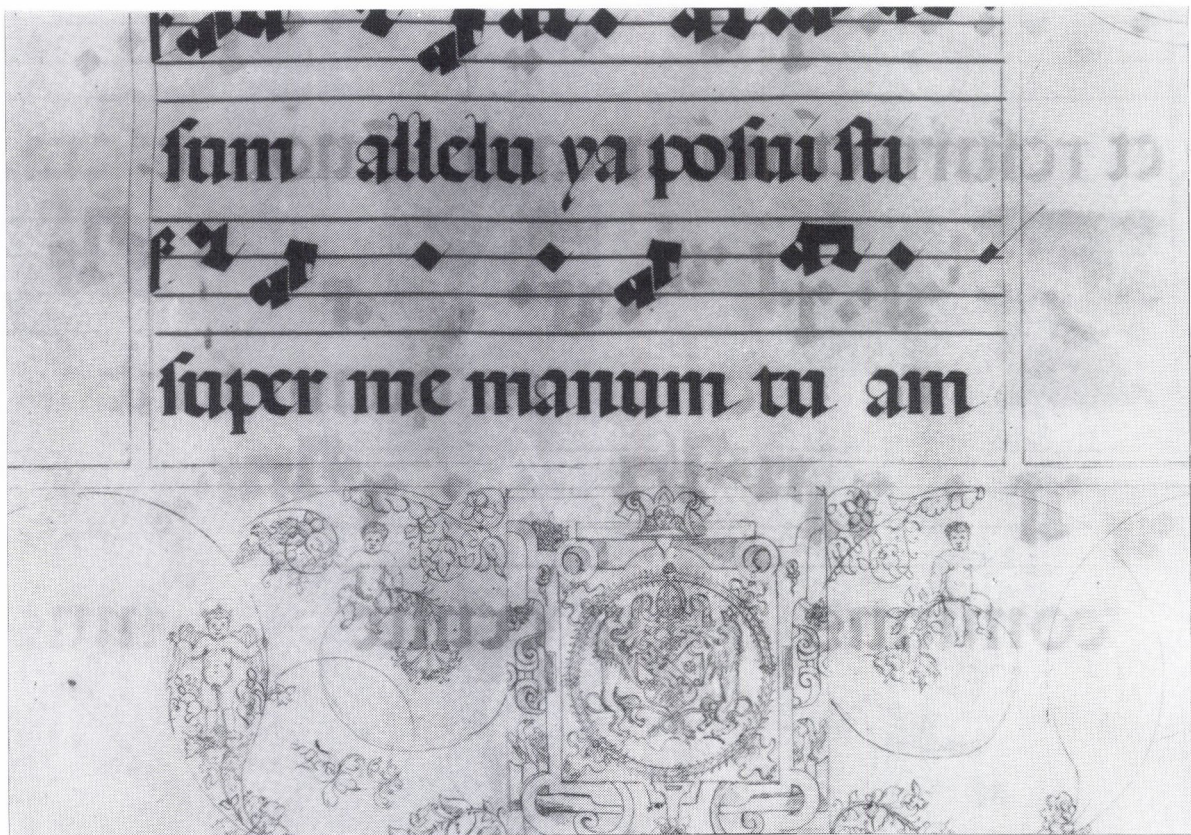 sum allelu ya posui sti
super me manum tu am